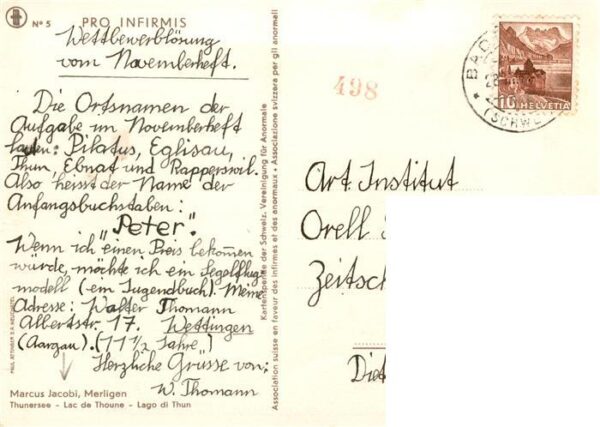 Nº 5 PRO INFIRMIS
Wettbewerblösung
vom Novemberheft.
Die Ortsnamen der
Aufgabe im Novemberheft
lauten: Pilatus, Eglisau,
Thun, Ebnat und Rapperswil.
Also heisst der Name der
Anfangsbuchstaben:
"Peter".
Wenn ich einen Preis bekommen
würde, möchte ich ein Segelflug-
modell (-em Jugendbuch). Meine
Adresse: Walter Thomann
Albertstr. 17. Wettingen
(Aargau). (11 1/2 Jahre)
Herzliche Grüsse von:
W. Thomann
Marcus Jacobi, Merligen
Thunersee – Lac de Thoune – Lago di Thun
Kartenspende der Schweiz. Vereinigung für Anormale
Association suisse en faveur des infirmes et des anormaux • Associazione svizzera per gli anormali
498
BAD
(SCHWE
10 HELVETIA
Art. Institut
Orell
Zeitsch
Diet